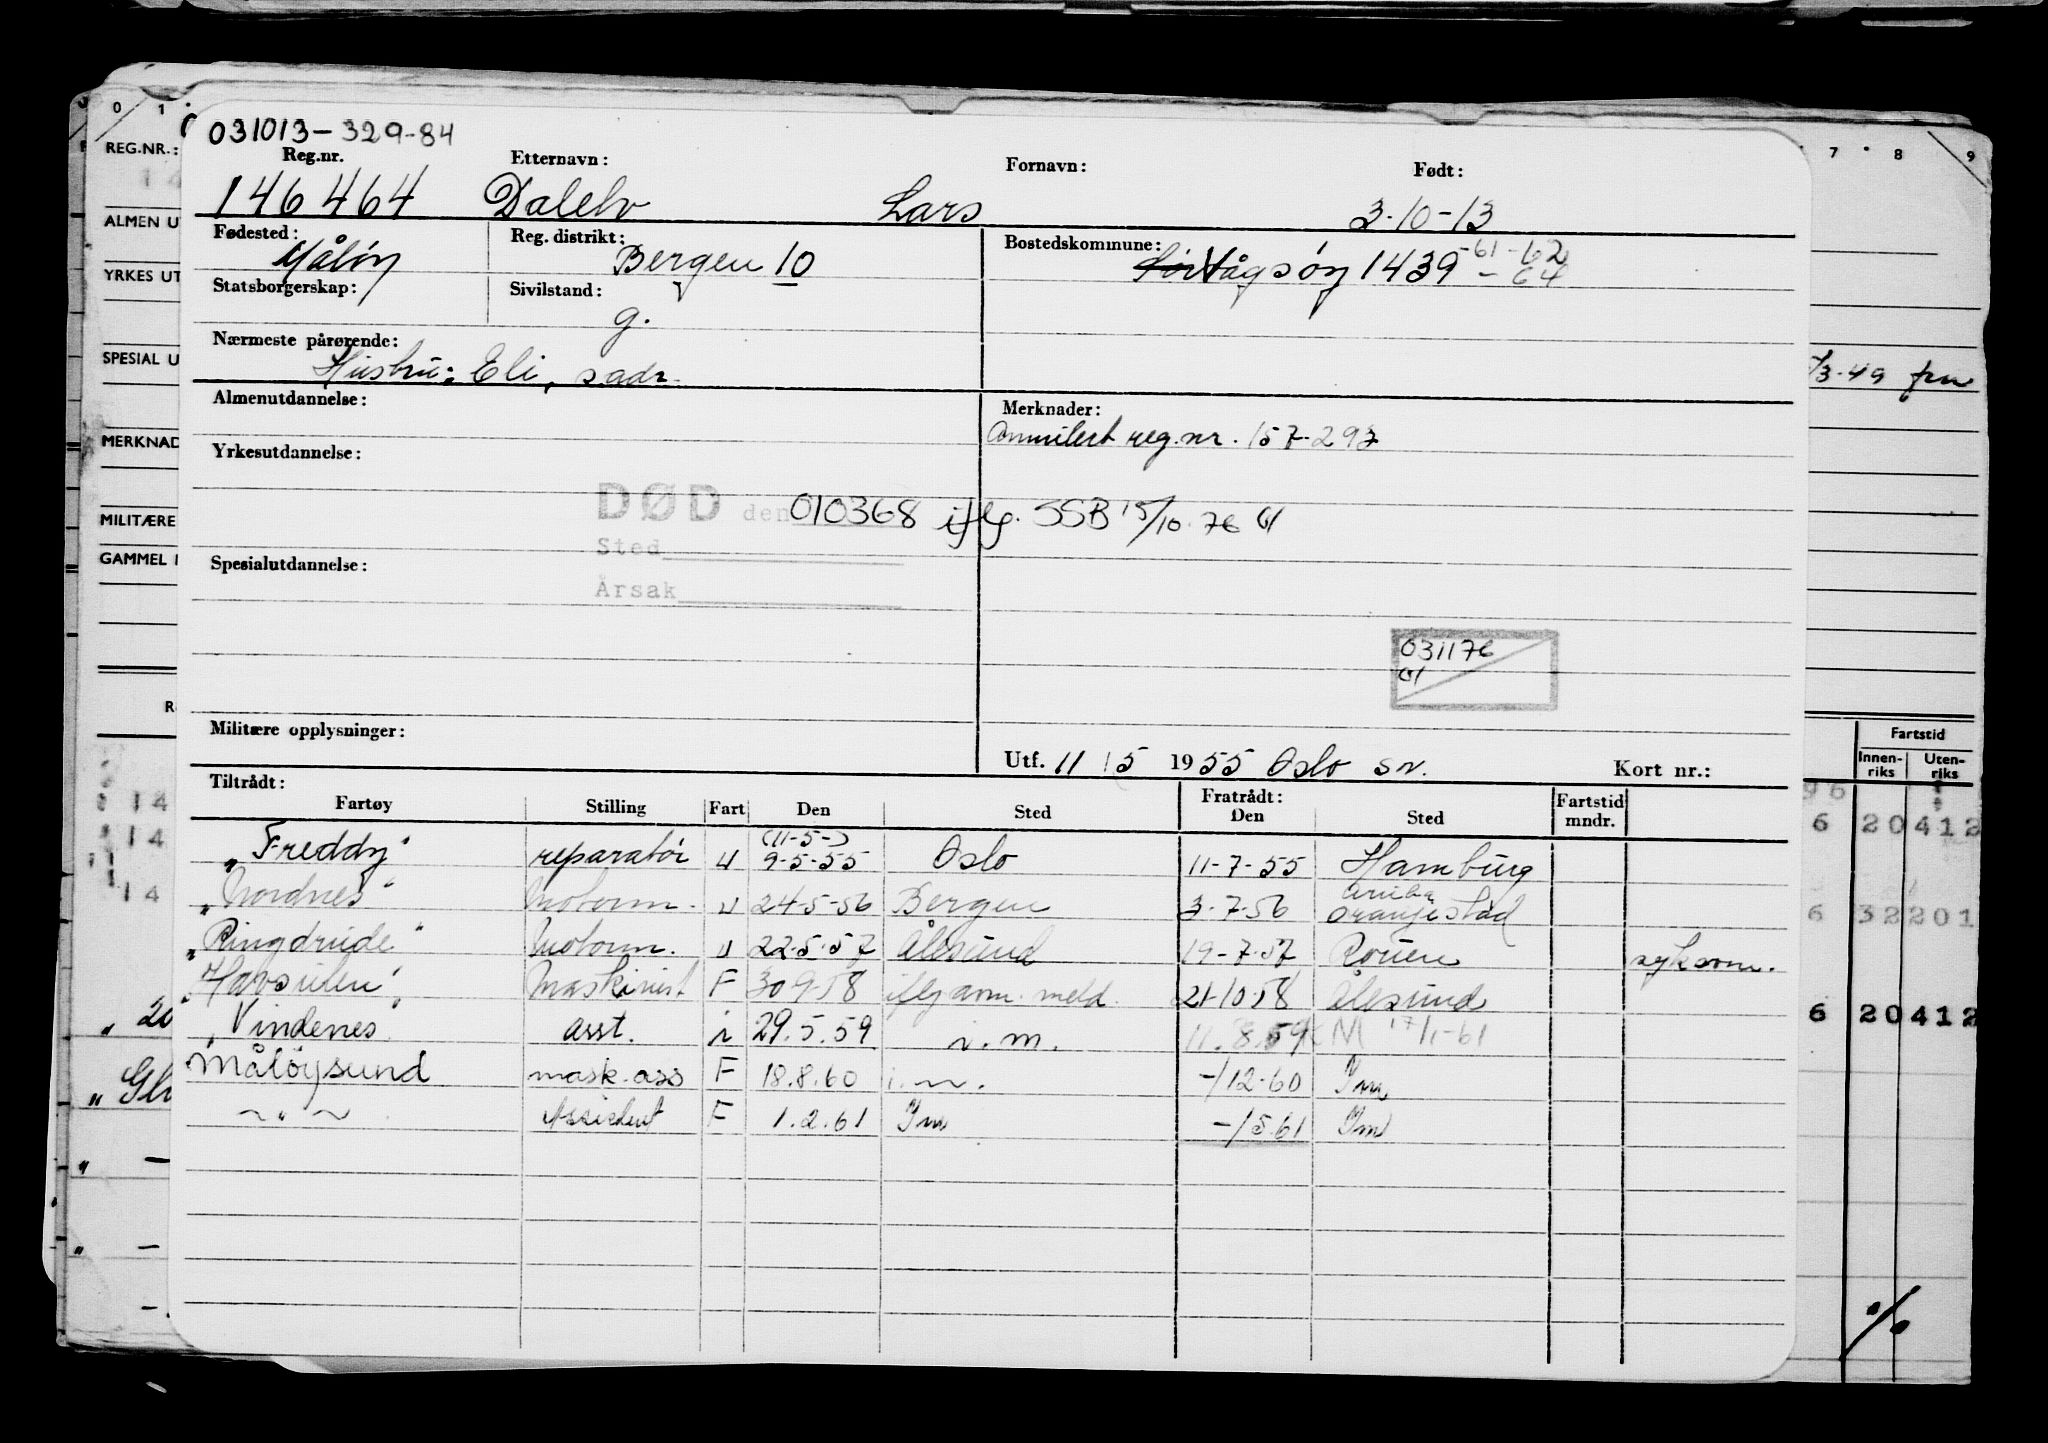 0 1 7 8 9
031013-329-84
REG.NR.:
Reg.nr. Etternavn: Fornavn: Født:
146464 Dalelv Lars 3-10-13
ALMEN U
Fødested: Reg. distrikt: Bostedskommune:
Måløy Bergen 10 Vågsøy 1439 -61-62
-64
YRKES UT
Statsborgerskap: Sivilstand:
g.
Nærmeste pårørende:
SPESIAL U
Hustru: Eli, s.adr. /3-49 fra
Almenutdannelse: Merknader:
MERKNAD
Annulert reg.nr. 157-297
Yrkesutdannelse:
DØD den 010368 iflg. SSB 15/10-76
MILITÆRE
Sted
GAMMEL
Spesialutdannelse:
Årsak
031176
Militære opplysninger:
Utf. 11/5 1955 Oslo sn. Kort nr.:
Fartstid
Innenriks Utenriks
Tiltrådt: Fratrådt:
Fartøy Stilling Fart Den Sted Den Sted Fartstid mndr.
(11-5-)
"Freddy" reparatør u 9-5-55 Oslo 11-7-55 Hamburg
14 6 20412
"Nordnes" Motorm. u 24-5-56 Bergen 3-7-56 Aruba Oranjestad
14 6 32201
"Ringdrude" Motorm. u 22-5-57 Ålesund 19-7-57 Rouen sykdom.
"Havsulen" Maskinist F 30-9-58 iflg. arm. meld. 21-10-58 Ålesund
"Vindenes" asst. i 29.5.59 i.m. 11.8.59 KM 17/1-61
6 20412
Måløysund mask.ass F 18.8.60 i.m. -/12-60 Im
~"~ Assistent F 1.2.61 Im -/5.61 Im
%